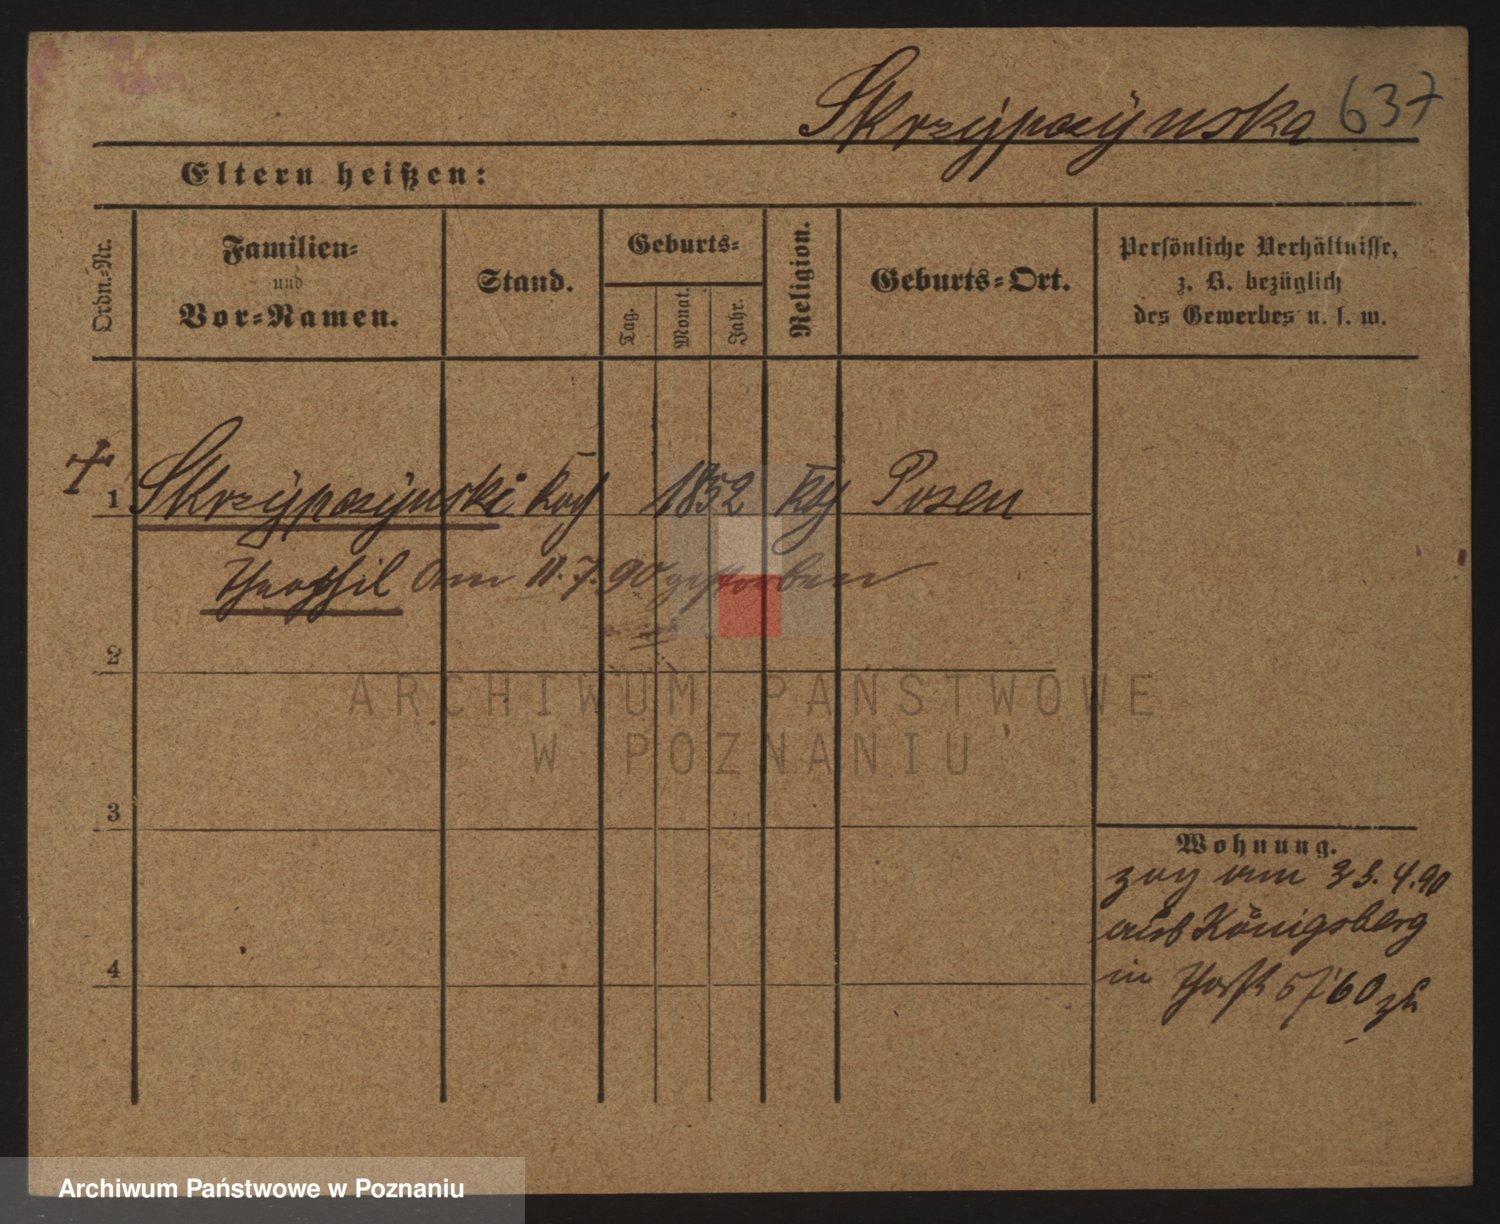 Skrzypczynska 637
Eltern heißen:
Ordn.-Nr.
Familien-
und
Vor-Namen.
Stand.
Geburts-
Tag.
Monat.
Jahr.
Religion.
Geburts-Ort.
Persönliche Verhältnisse,
z. B. bezüglich
des Gewerbes u. s. w.
1 Skrzypczynski 1852 Posen
Theophil am 11.7.90 gestorben
2
3
4
Wohnung.
zog am 23.4.90
aus Königsberg
in
ARCHIWUM PAŃSTWOWE
W POZNANIU
Archiwum Państwowe w Poznaniu